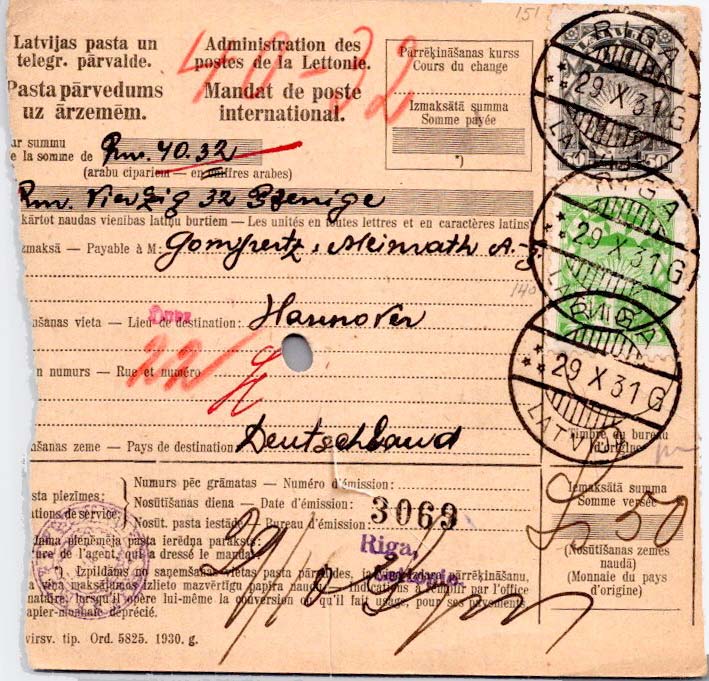 151
Latvijas pasta un
telegr. pārvalde.
Pasta pārvedums
uz ārzemēm.
Administration des
postes de la Lettonie.
Mandat de poste
international.
40-32
Pārrēķināšanas kurss
Cours du change
Izmaksātā summa
Somme payée
*)
RIGA
29 X 31 G
LATVIJA
50 50
ar summu
de la somme de Rm. 40.32
(arabu cipariem — en chiffres arabes)
Rm. Vierzig 32 Pfenige
kārtot naudas vienības latiņu burtiem — Les unités en toutes lettres et en caractères latins
Izmaksā — Payable à M: Gompertz, Meinrath A.-g
RIGA
29 X 31 G
LATVIJA
140
šanas vieta — Lieu de destination: Hannover
22/
en numurs — Rue et numéro
RIGA
29 X 31 G
LATVIJA
šanas zeme — Pays de destination: Deutschland
Timbre du bureau
d'origine
sta piezīmes:
ations de service:
Numurs pēc grāmatas — Numéro d'émission:
Nosūtīšanas diena — Date d'émission:
Nosūt. pasta iestāde — Bureau d'émission:
3069
Riga,
Izmaksātā summa
Somme versée
Ls 50
(Nosūtīšanas zemes
naudā)
(Monnaie du pays
d'origine)
uma pieņēmēja pasta ierēdņa paraksts:
ure de l'agent, qui a dressé le mandat
*) Izpildāms no saņemšanas vietas pasta pārvaldes, ja tā izdara pārrēķināšanu,
vai ja maksājumos izlieto mazvērtīgu papīra naudu. — Indications à remplir par l'office
nataire, lorsqu'il opère lui-même la conversion ou qu'il fait usage, pour ses payements
papier-monnaie déprécié.
virsv. tip. Ord. 5825. 1930. g.